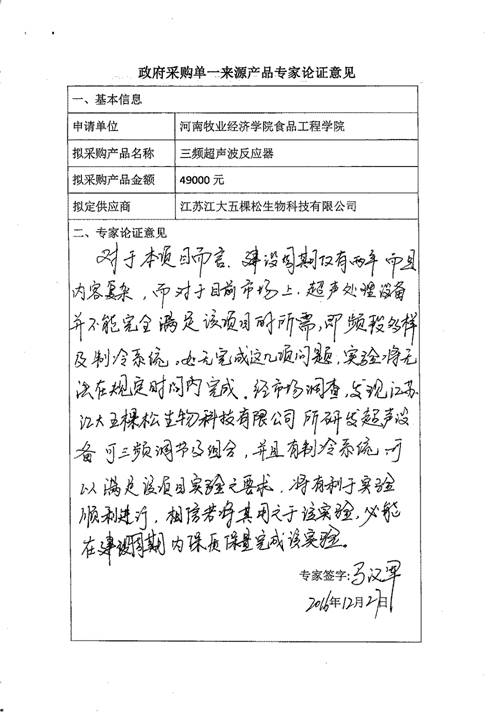 政府采购单一来源产品专家论证意见
一、基本信息
申请单位 河南牧业经济学院食品工程学院
拟采购产品名称 三频超声波反应器
拟采购产品金额 49000 元
拟定供应商 江苏江大五棵松生物科技有限公司
二、专家论证意见
对于本项目而言，建设周期仅有两年而且
内容复杂，而对于目前市场上，超声处理设备
并不能完全满足该项目时所需，即频段多样
及制冷系统，如无完成这几项问题，实验将无
法在规定时间内完成。经市场调查，发现江苏
江大五棵松生物科技有限公司所研发超声设
备可三频调节及组合，并且有制冷系统，可
以满足该项目实验之要求，将有利于实验
顺利进行，相信若将其用之于该实验，必能
在建设周期内保质保量完成该实验。
专家签字：马汉军
2016年12月27日